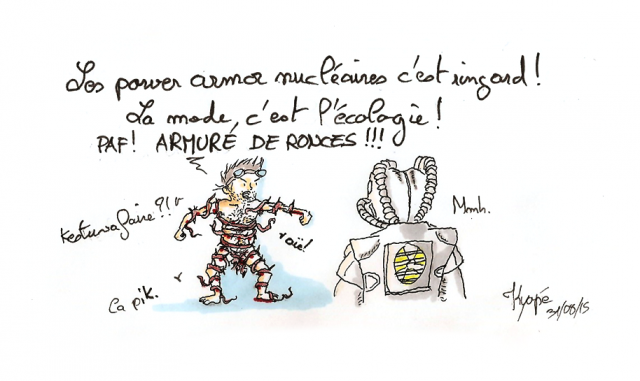 Les power armor nucléaires c'est ringard !
La mode, c'est l'écologie !
PAF! ARMURE DE RONCES !!!
Kestuvafaire ?!
oïe!
Ca pik.
Mmh.
Kyopé
31/08/15